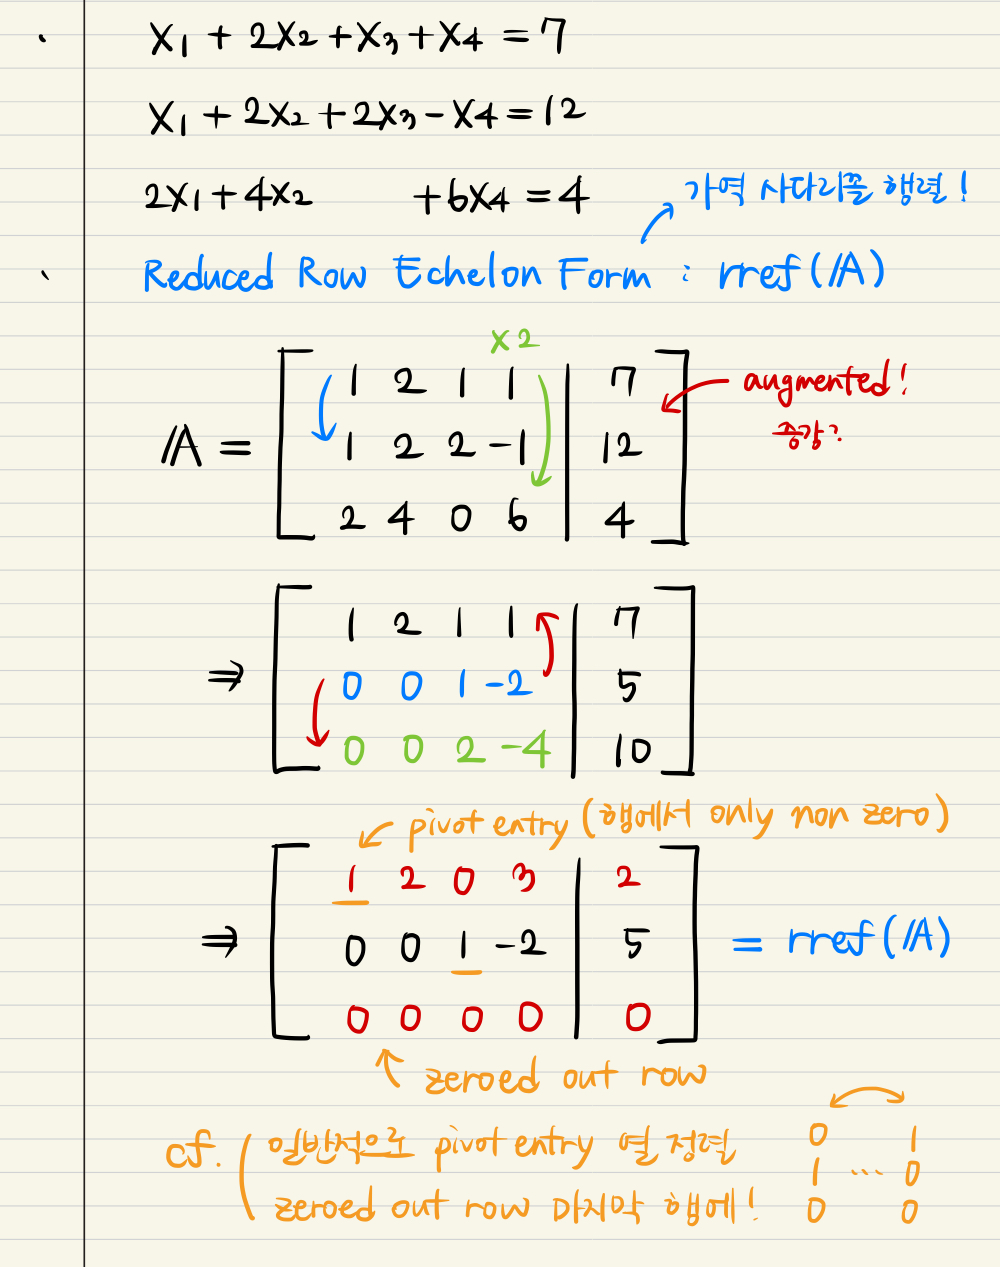 x₁ + 2x₂ + x₃ + x₄ = 7
x₁ + 2x₂ + 2x₃ - x₄ = 12
2x₁ + 4x₂ + 6x₄ = 4
가역 사다리꼴 행렬!
Reduced Row Echelon Form : rref(A)
x2
A = [ 1 2 1 1 | 7 ]
1 2 2 -1 | 12
2 4 0 6 | 4
augmented!
증강?
⇒ [ 1 2 1 1 | 7 ]
0 0 1 -2 | 5
0 0 2 -4 | 10
pivot entry (행에서 only non zero)
⇒ [ 1 2 0 3 | 2 ]
0 0 1 -2 | 5
0 0 0 0 | 0
= rref(A)
zeroed out row
cf. ( 일반적으로 pivot entry 열 정렬
zeroed out row 마지막 행에!
0 1
1 ... 0
0 0